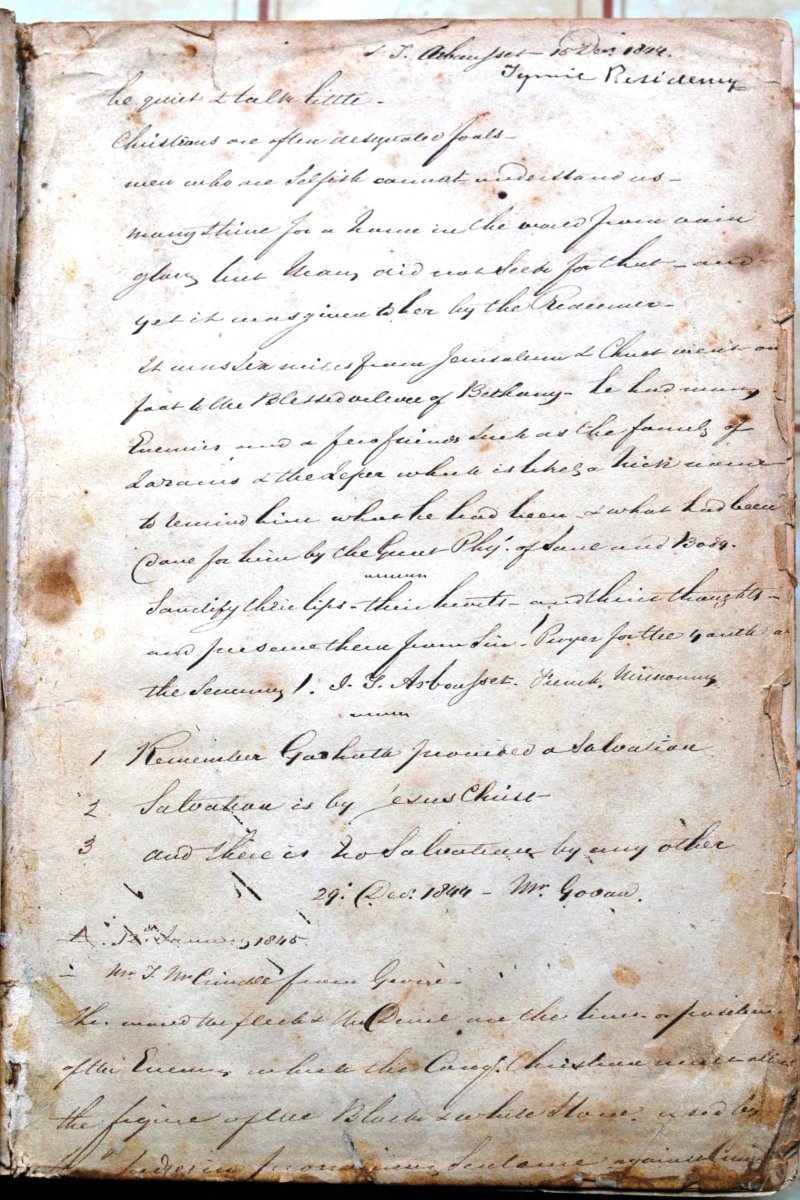 T. Arbousset - 15 Dec. 1844.
Tyumie Residency
be quiet & talk little -
Christians are often designated fools -
men who are Selfish cannot understand us -
many strive for a Name in the world from vain
glory but Mary did not Seek for that - and
yet it was given to her by the Redeemer -
It was Six miles from Jerusalem & Christ went on
foot to the Blessed village of Bethany - he had many
Enemies and a few friends Such as the family of
Lazarus & the Leper which is likely a nick name
to remind him what he had been - & what had been
Done for him by the Great Phy. of Soul and Body.
Sanctify their lips - their hearts - and their thoughts -
and preserve them from Sin. Prayer for the youth a
the Seminary. T. Arbousset. French. Missionary
1 Remember God hath promised a Salvation
2 Salvation is by Jesus Christ
3 and there is no Salvation by any other
29. Dec. 1844 - Mr. Govan.
January 1845.
Mr. from
The world the flesh & the Devil are the position
of the Enemy which the Christian
the figure of the Black & white Stone used by
in Sentence against